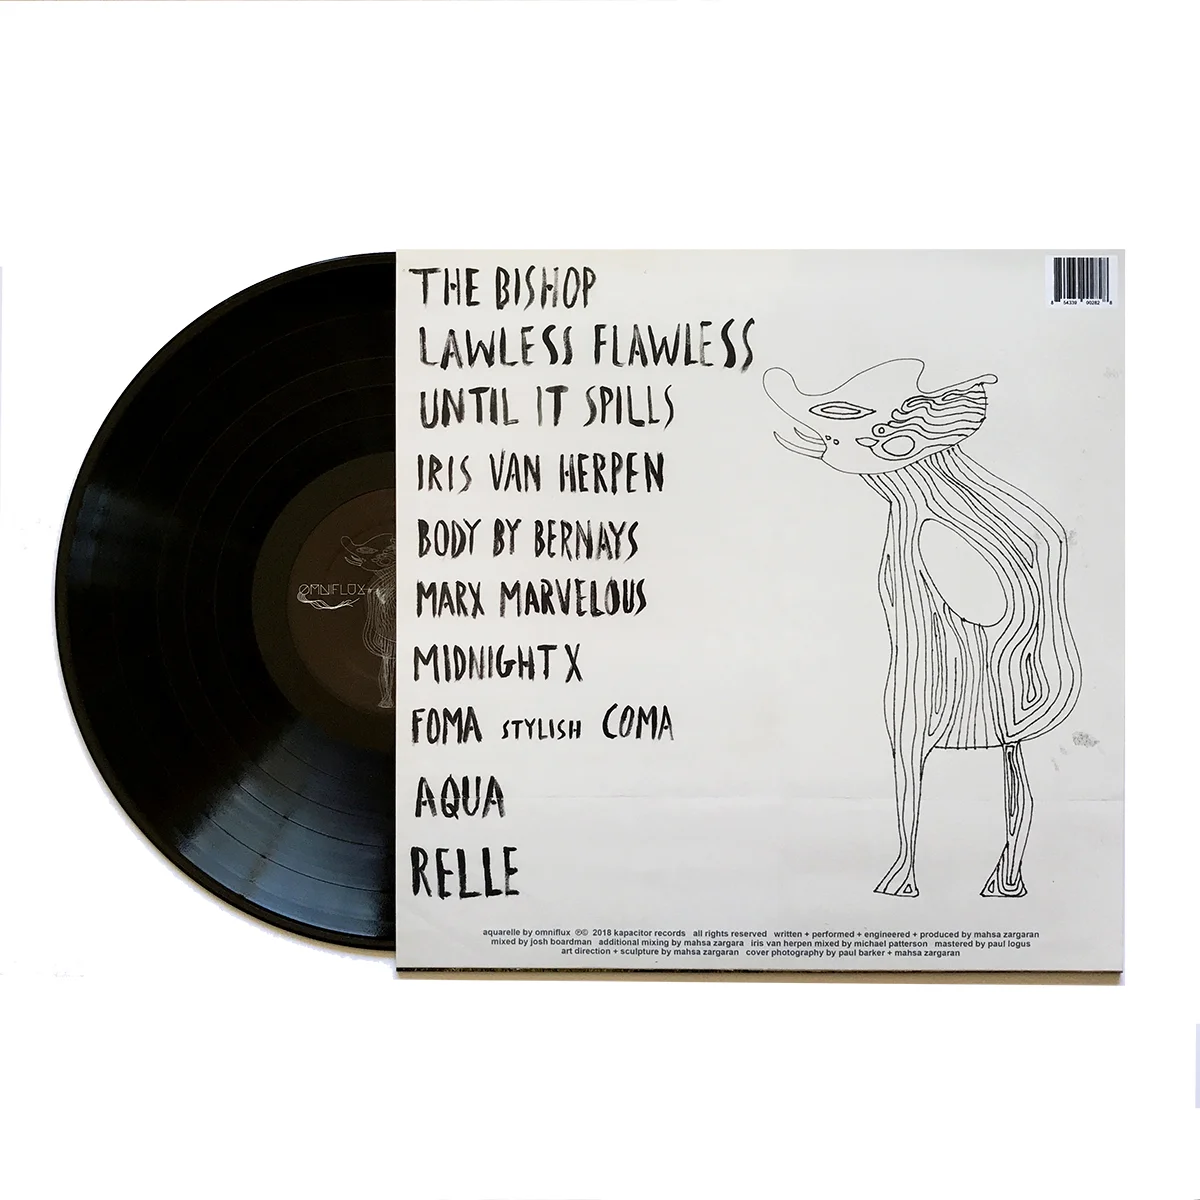 THE BISHOP
LAWLESS FLAWLESS
UNTIL IT SPILLS
IRIS VAN HERPEN
BODY BY BERNAYS
MARX MARVELOUS
MIDNIGHT X
FOMA STYLISH COMA
AQUA
RELLE
8 54338 00282 8
OMNIFLUX
aquarelle by omniflux ℗© 2018 kapacitor records all rights reserved written + performed + engineered + produced by mahsa zargaran
mixed by josh boardman additional mixing by mahsa zargara iris van herpen mixed by michael patterson mastered by paul logus
art direction + sculpture by mahsa zargaran cover photography by paul barker + mahsa zargaran